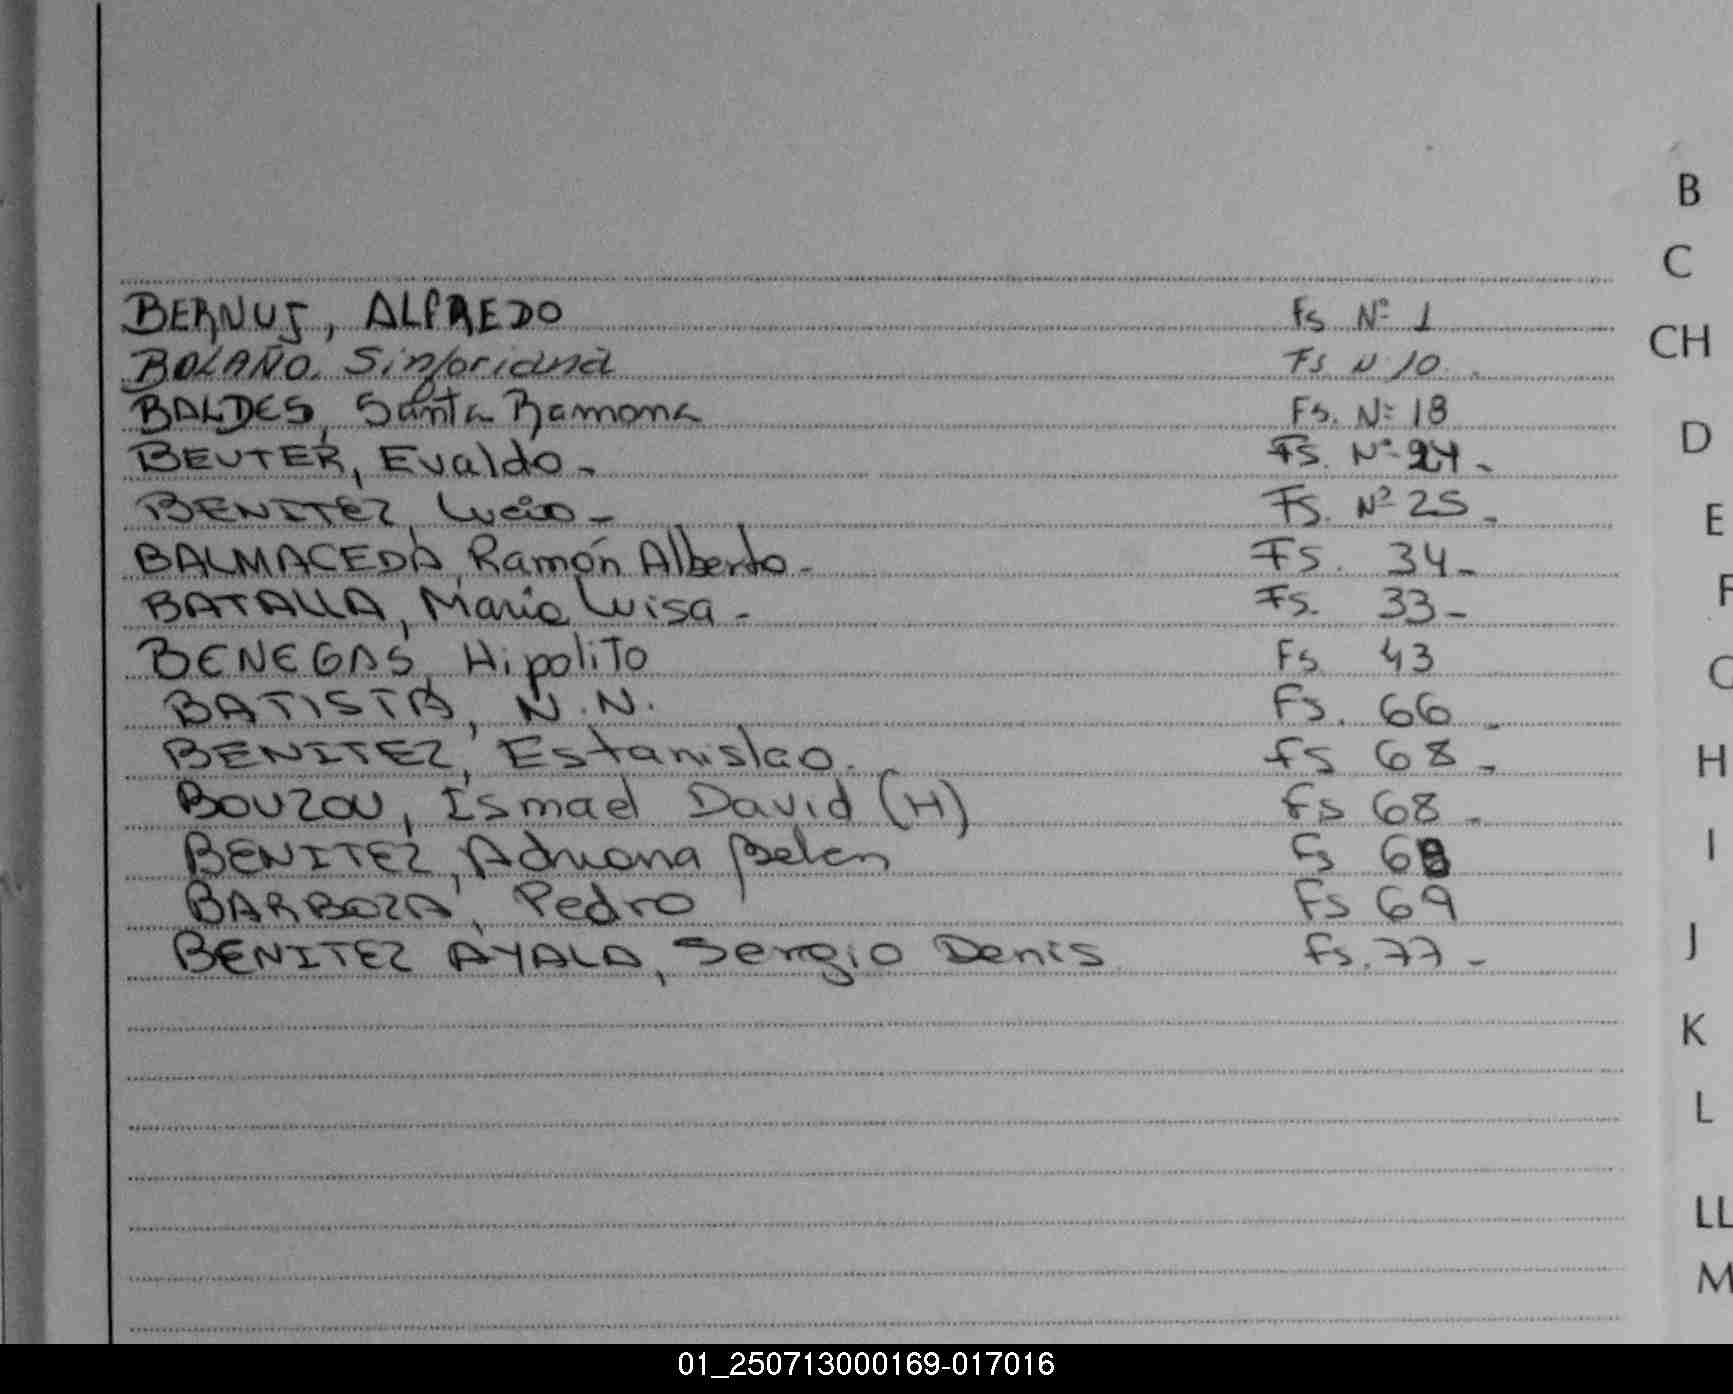 BERNUS, ALFREDO Fs Nº 1
BOLAÑO, Sinforiana Fs N 10
BALDES, Santa Ramona Fs. Nº 18
BEUTER, Evaldo - Fs. Nº 24 -
BENITEZ, Lucio - Fs. Nº 25 -
BALMACEDA, Ramón Alberto - Fs. 34 -
BATALLA, Maria Luisa - Fs. 33 -
BENEGAS, Hipolito Fs 43
BATISTA, N.N. Fs. 66 -
BENITEZ, Estanislao. Fs 68 -
BOUZOU, Ismael David (H) Fs 68 -
BENITEZ, Adriana Belen Fs
BARBOZA, Pedro Fs 69
BENITEZ AYALA, Sergio Denis Fs. 77 -
B
C
CH
D
E
F
H
I
J
K
L
LL
M
01_250713000169-017016